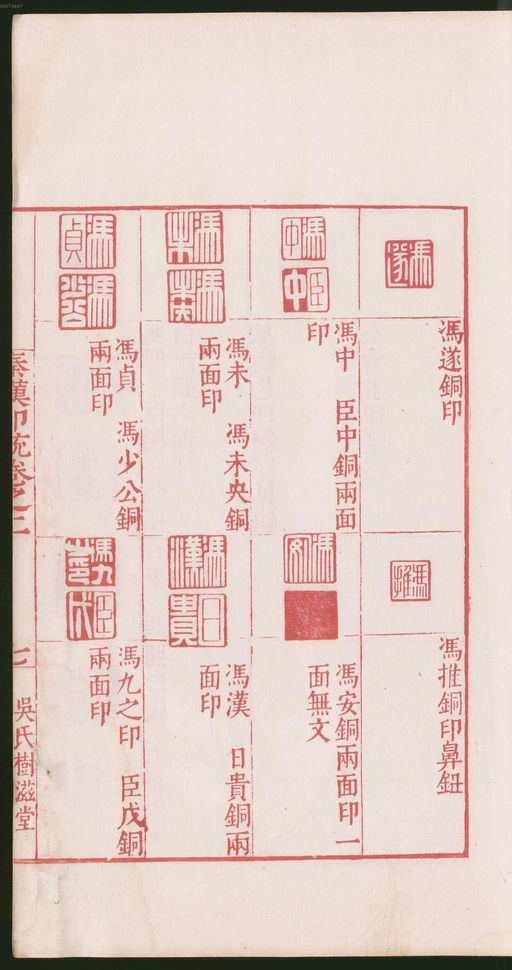 馮遂銅印
馮推銅印鼻鈕
馮中 臣中銅兩面
印
馮安銅兩面印一
面無文
馮未 馮未央銅
兩面印
馮漢 日貴銅兩
面印
馮貞 馮少公銅
兩面印
馮九之印 臣戊銅
兩面印
秦漢印統卷之二
七 吳氏樹滋堂
00073487